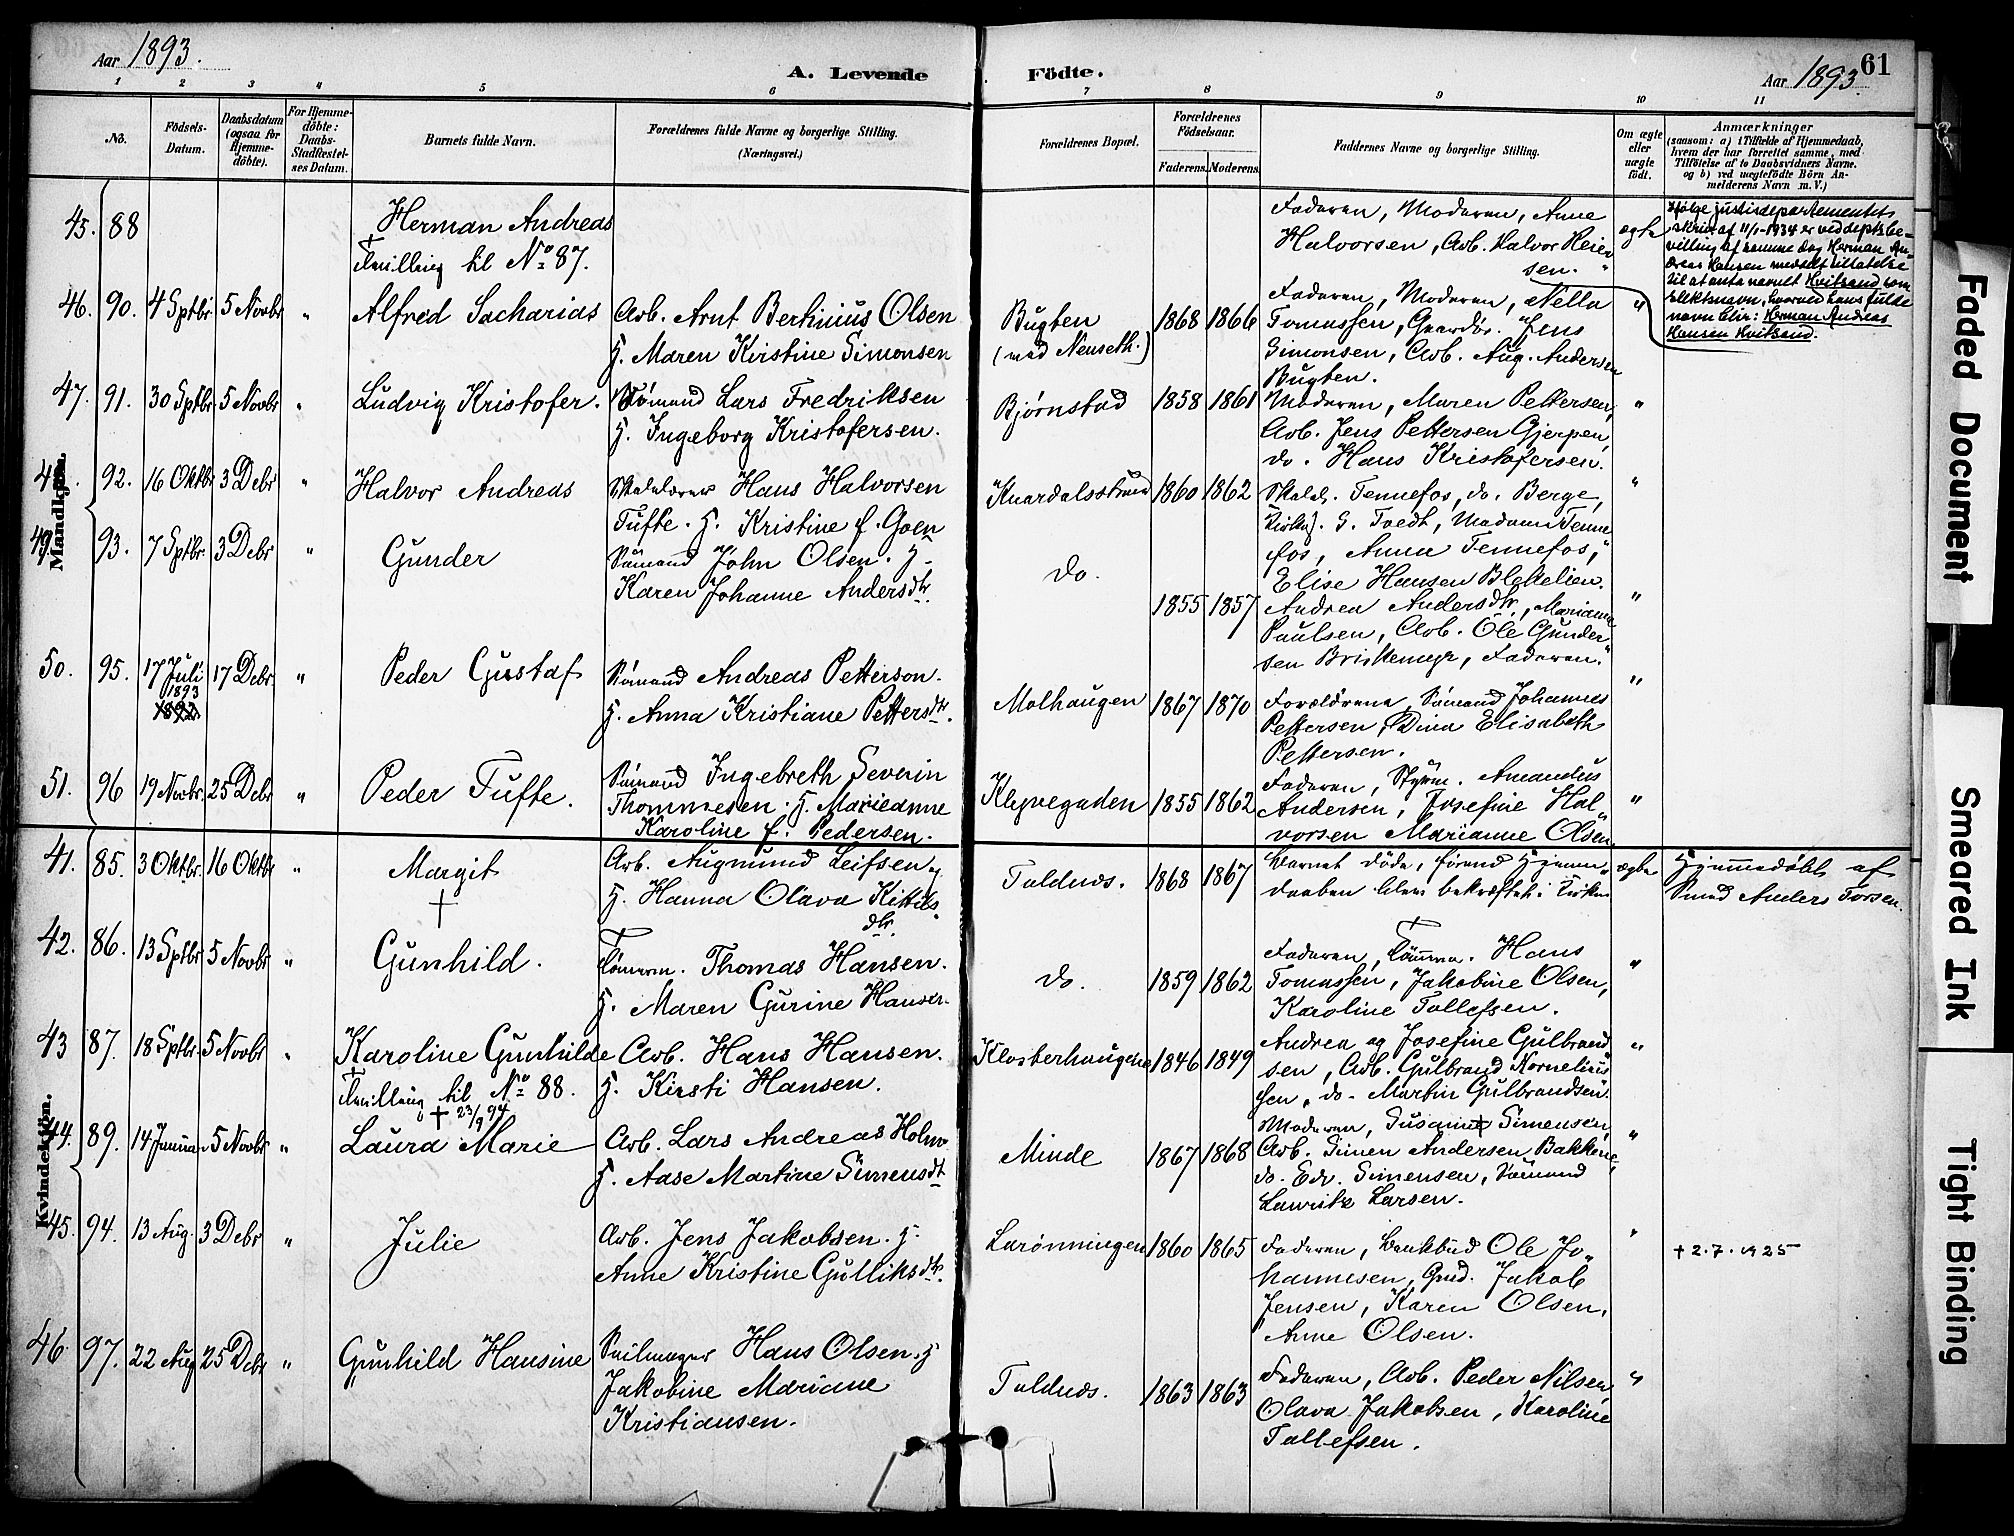 Aar 1893.
A. Levende Födte.
Aar 1893.
61
1 2 3 4 5 6 7 8 9 10 11
No.
Födsels-Datum.
Daabsdatum (ogsaa for hjemme-döbte).
For Hjemme-döbte: Daabs-Stadfæstel-ses Datum.
Barnets fulde Navn.
Forældrenes fulde Navne og borgerlige Stilling.
(Næringsvei.)
Forældrenes Bopæl.
Forældrenes Födselsaar.
Faderens. Moderens.
Faddernes Navne og borgerlige Stilling.
Om ægte eller uægte födt.
Anmærkninger
(saasom: a) i Tilfælde af Hjemmedaab,
hvem der har forrettet samme, med
Tilföielse af to Daabsvidners Navne.
og b) ved uægtefödte Börn An-
melderens Navn m. V.)
Mandkjön.
45. 88 Herman Andreas
Tvilling til No 87.
Faderen, Moderen, Anne
Halvorsen, Arb. Halvor Reier
sen.
ægte
Ifølge justisdepartementets
skriv af 11/1-1934 er ved dept's be-
villing af samme dag Herman An-
dreas Hansen meddelt tillatelse
til at anta navnet Kvitsand som
slektsnavn, hvorved hans fulde
navn blir: Herman Andreas
Hansen Kvitsand.
46. 90. 4 Sptbr 5 Novbr " Alfred Sacharias Arb. Arnt Berthinius Olsen
H. Maren Kirstine Simonsen
Bugten
(med Nenseth.)
1868 1866
Faderen, Moderen, Nella
Tomassen, Gaardbr. Jens
Simonsen, Arb. Aug. Andersen
Bugten.
"
47. 91. 30 Sptbr. 5 Novbr " Ludvig Kristofer. Sømand Lars Fredriksen
H. Ingeborg Kristofersen.
Bjørnstad 1858 1861
Moderen, Maren Pettersen,
Arb. Jens Pettersen Gjerpen,
do. Hans Kristofersen.
"
48. 92. 16 Oktbr 3 Debr " Halvor Andreas Skolelærer Hans Halvorsen
Tufte. H. Kristine f. Goen
Knardalsstrand 1860 1862
Skolel. Tennefos, do. Berge,
Kirkes. G. Tvedt, Madam Tenne
fos, Anna Tennefos,
Elise Hansen Blekelien.
"
49. 93. 7 Sptbr. 3 Debr " Gunder Sømand John Olsen. H.
Karen Johanne Andersdtr.
do. 1855 1857
Andrea Andersdtr., Marianne
Paulsen, Arb. Ole Gunder
sen Briskemyr, Faderen.
"
50. 95. 17 Juli
1893
17 Debr " Peder Gustaf Sømand Andreas Petterson.
H. Anna Kristiane Pettersdtr.
Molhaugen 1867 1870
Forældrene, Sømand Johannes
Pettersen, Dina Elisabeth
Pettersen.
"
51. 96 19 Novbr. 25 Debr " Peder Tufte. Sømand Ingebreth Severin
Thommesen. H. Marieanne
Karoline f. Pedersen.
Kleyvegaden 1855 1862
Faderen, Styrm. Amandus
Andersen, Josefine Hal
vorsen Marianne Olsen.
"
Kvindekjön.
41. 85. 3 Oktbr. 16 Oktbr " Margit
†
Arb. Augmund Leifsen,
H. Hanna Olava Kittils
dtr.
Toldnes. 1868 1867
Barnet døde, førend Hjemme
daaben blev bekræftet i Kirken
ægte
Hjemmedøbt af
Smed Anders Torsen.
42. 86. 13 Sptbr 5 Novbr " Gunhild. Tømrerm. Thomas Hansen.
H. Maren Gurine Hansen.
do. 1859 1862
Faderen, Tømmerm. Hans
Tomassen, Jakobine Olsen,
Karoline Tollefsen.
"
43 87. 18 Sptbr. 5 Novbr " Karoline Gunhilde Arb. Hans Hansen.
Tvilling til No 88. H. Kirsti Hansen.
Klosterhaugene 1846 1849
Andrea og Josefine Gulbrand
sen, Arb. Gulbrand Kornelius
sen, do. Martin Gulbrandsen.
"
† 23/9 94
44. 89. 14 Januar 5 Novbr " Laura Marie Arb. Lars Andreas Holm
H. Aase Martine Simensdtr
Minde 1867 1868
Moderen, Susanne Simensen,
Arb. Simen Andersen Bakkene,
do. Edv. Simensen, Sømand
Lauritz Larsen.
"
45. 94. 13 Aug. 3 Debr " Julie Arb. Jens Jakobsen. H.
Anne Kristine Gulliksdtr.
Larønningen 1860 1865
Faderen, Bankbud Ole Jo
hannesen, Grd. Jakob
Jensen, Karen Olsen,
Anne Olsen.
"
† 2.7.1925
46. 97. 22 Aug 25 Debr " Gunhild Hansine Seilmager Hans Olsen. H
Jakobine Mariane
Kristiansen.
Toldnes. 1863 1863
Faderen, Arb. Peder Nilsen,
Olava Jakobsen, Karoline
Tollefsen.
"
Faded Document
Smeared Ink
Tight Binding